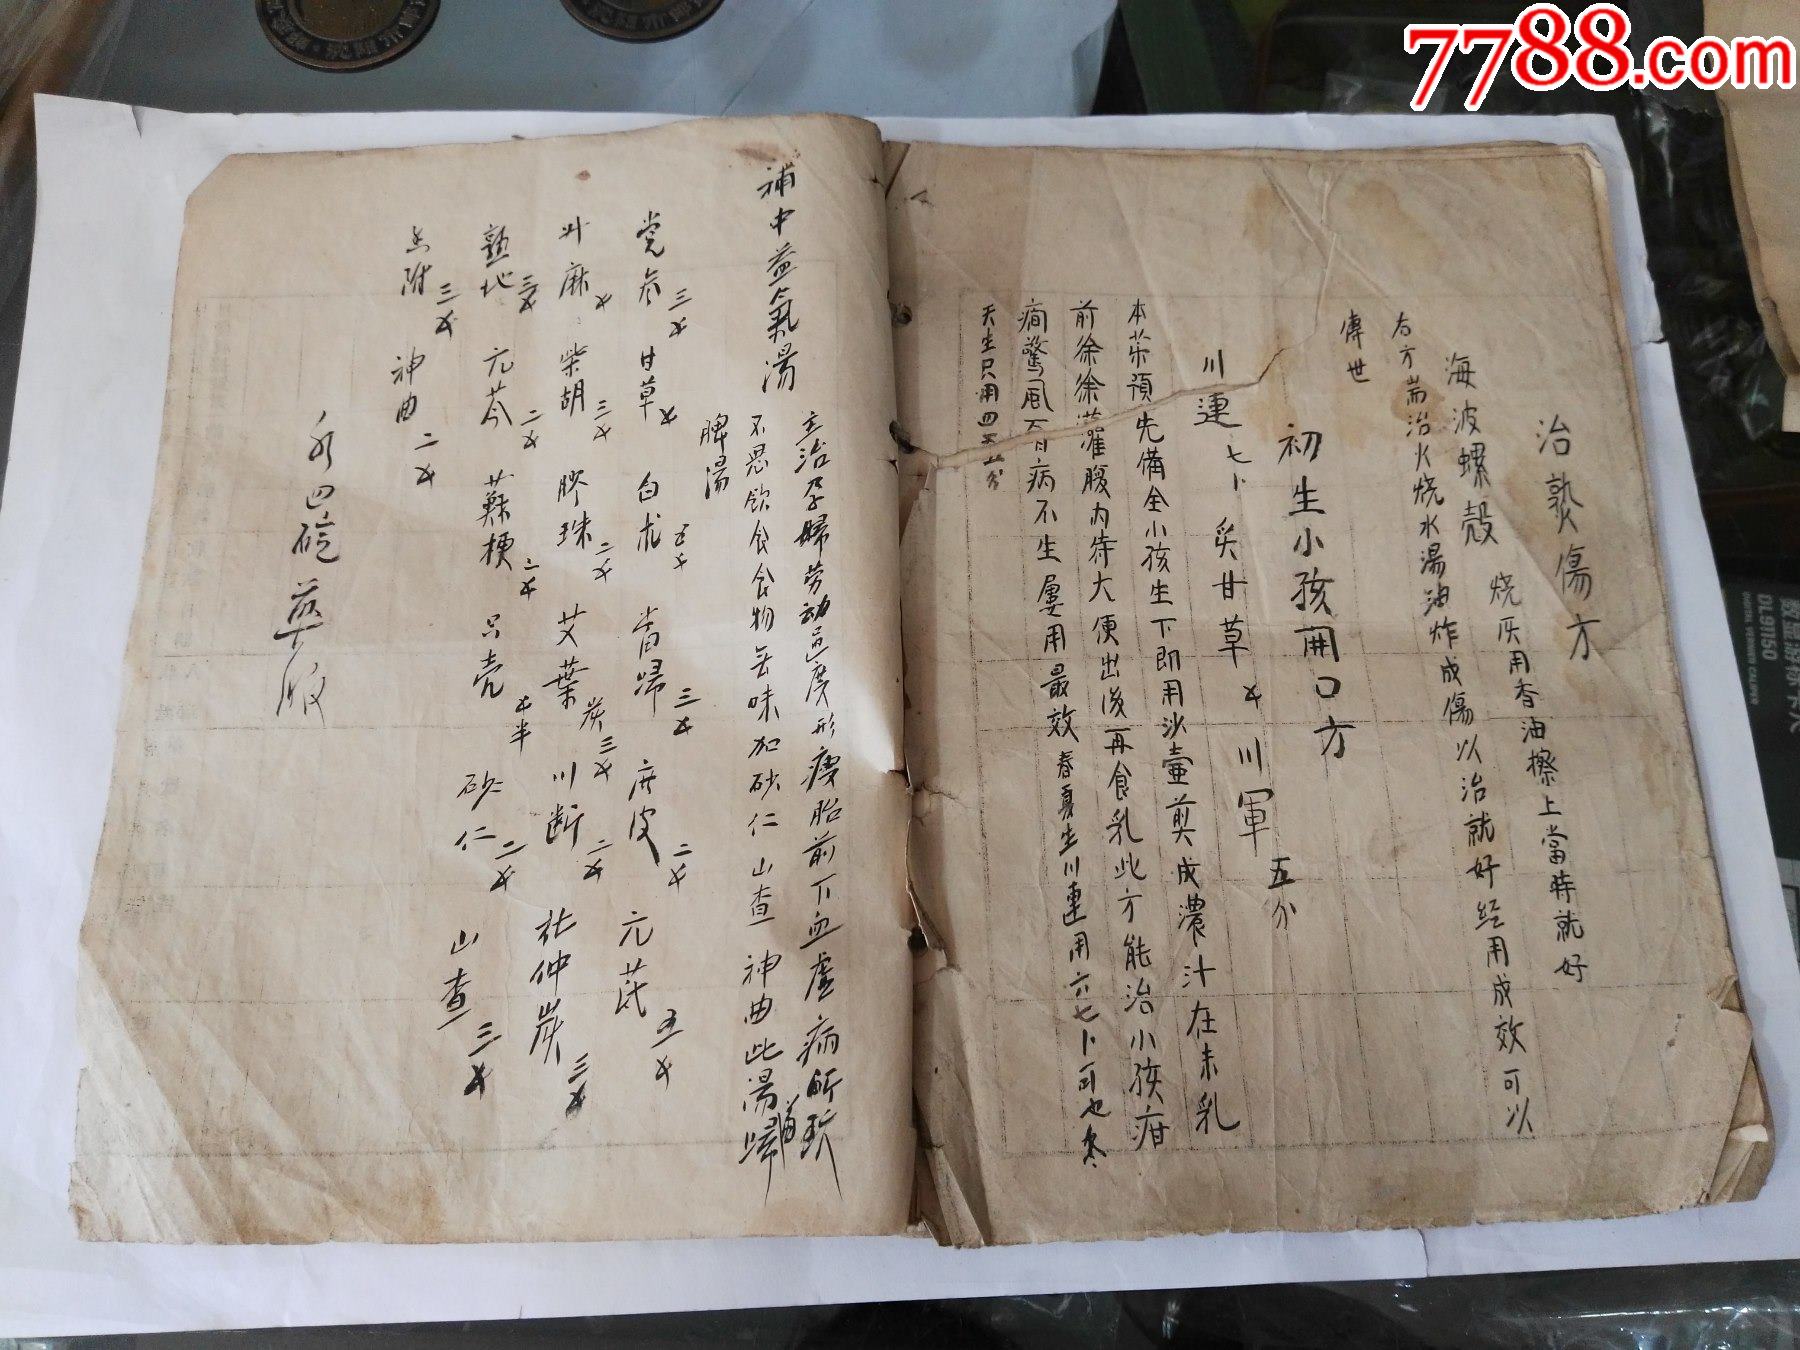 7788.com
治熱傷方
海波螺殼 燒灰用香油擦上當時就好
右方耑治火燒水湯油炸成傷以治就好經用成效可以
傳世
初生小孩開口方
川連 七卜 炙甘草 川軍 五分
本茶預先備全小孩生下即用沙壶煎成濃汁在未乳
前徐徐灌腹内待大便出後再食乳此方能治小孩疳
癇驚風百病不生屡用最效春夏生川連用六七卜可也冬
天生只用四五分
補中益氣湯 主治孕婦勞动過度形瘦胎前下血虚病所致
不思飲食食物無味加砂仁山查神曲此湯歸
脾湯
党参 三 甘草 白术 五 當归 三 皮 二 元芪 五
升麻 柴胡 三 膠珠 二 艾葉炭 三 川断 二 杜仲炭 三
熟地 三 元芩 二 蘇梗 二 只壳 半 砂仁 二 山查 三
香附 三 神曲 二
水四碗